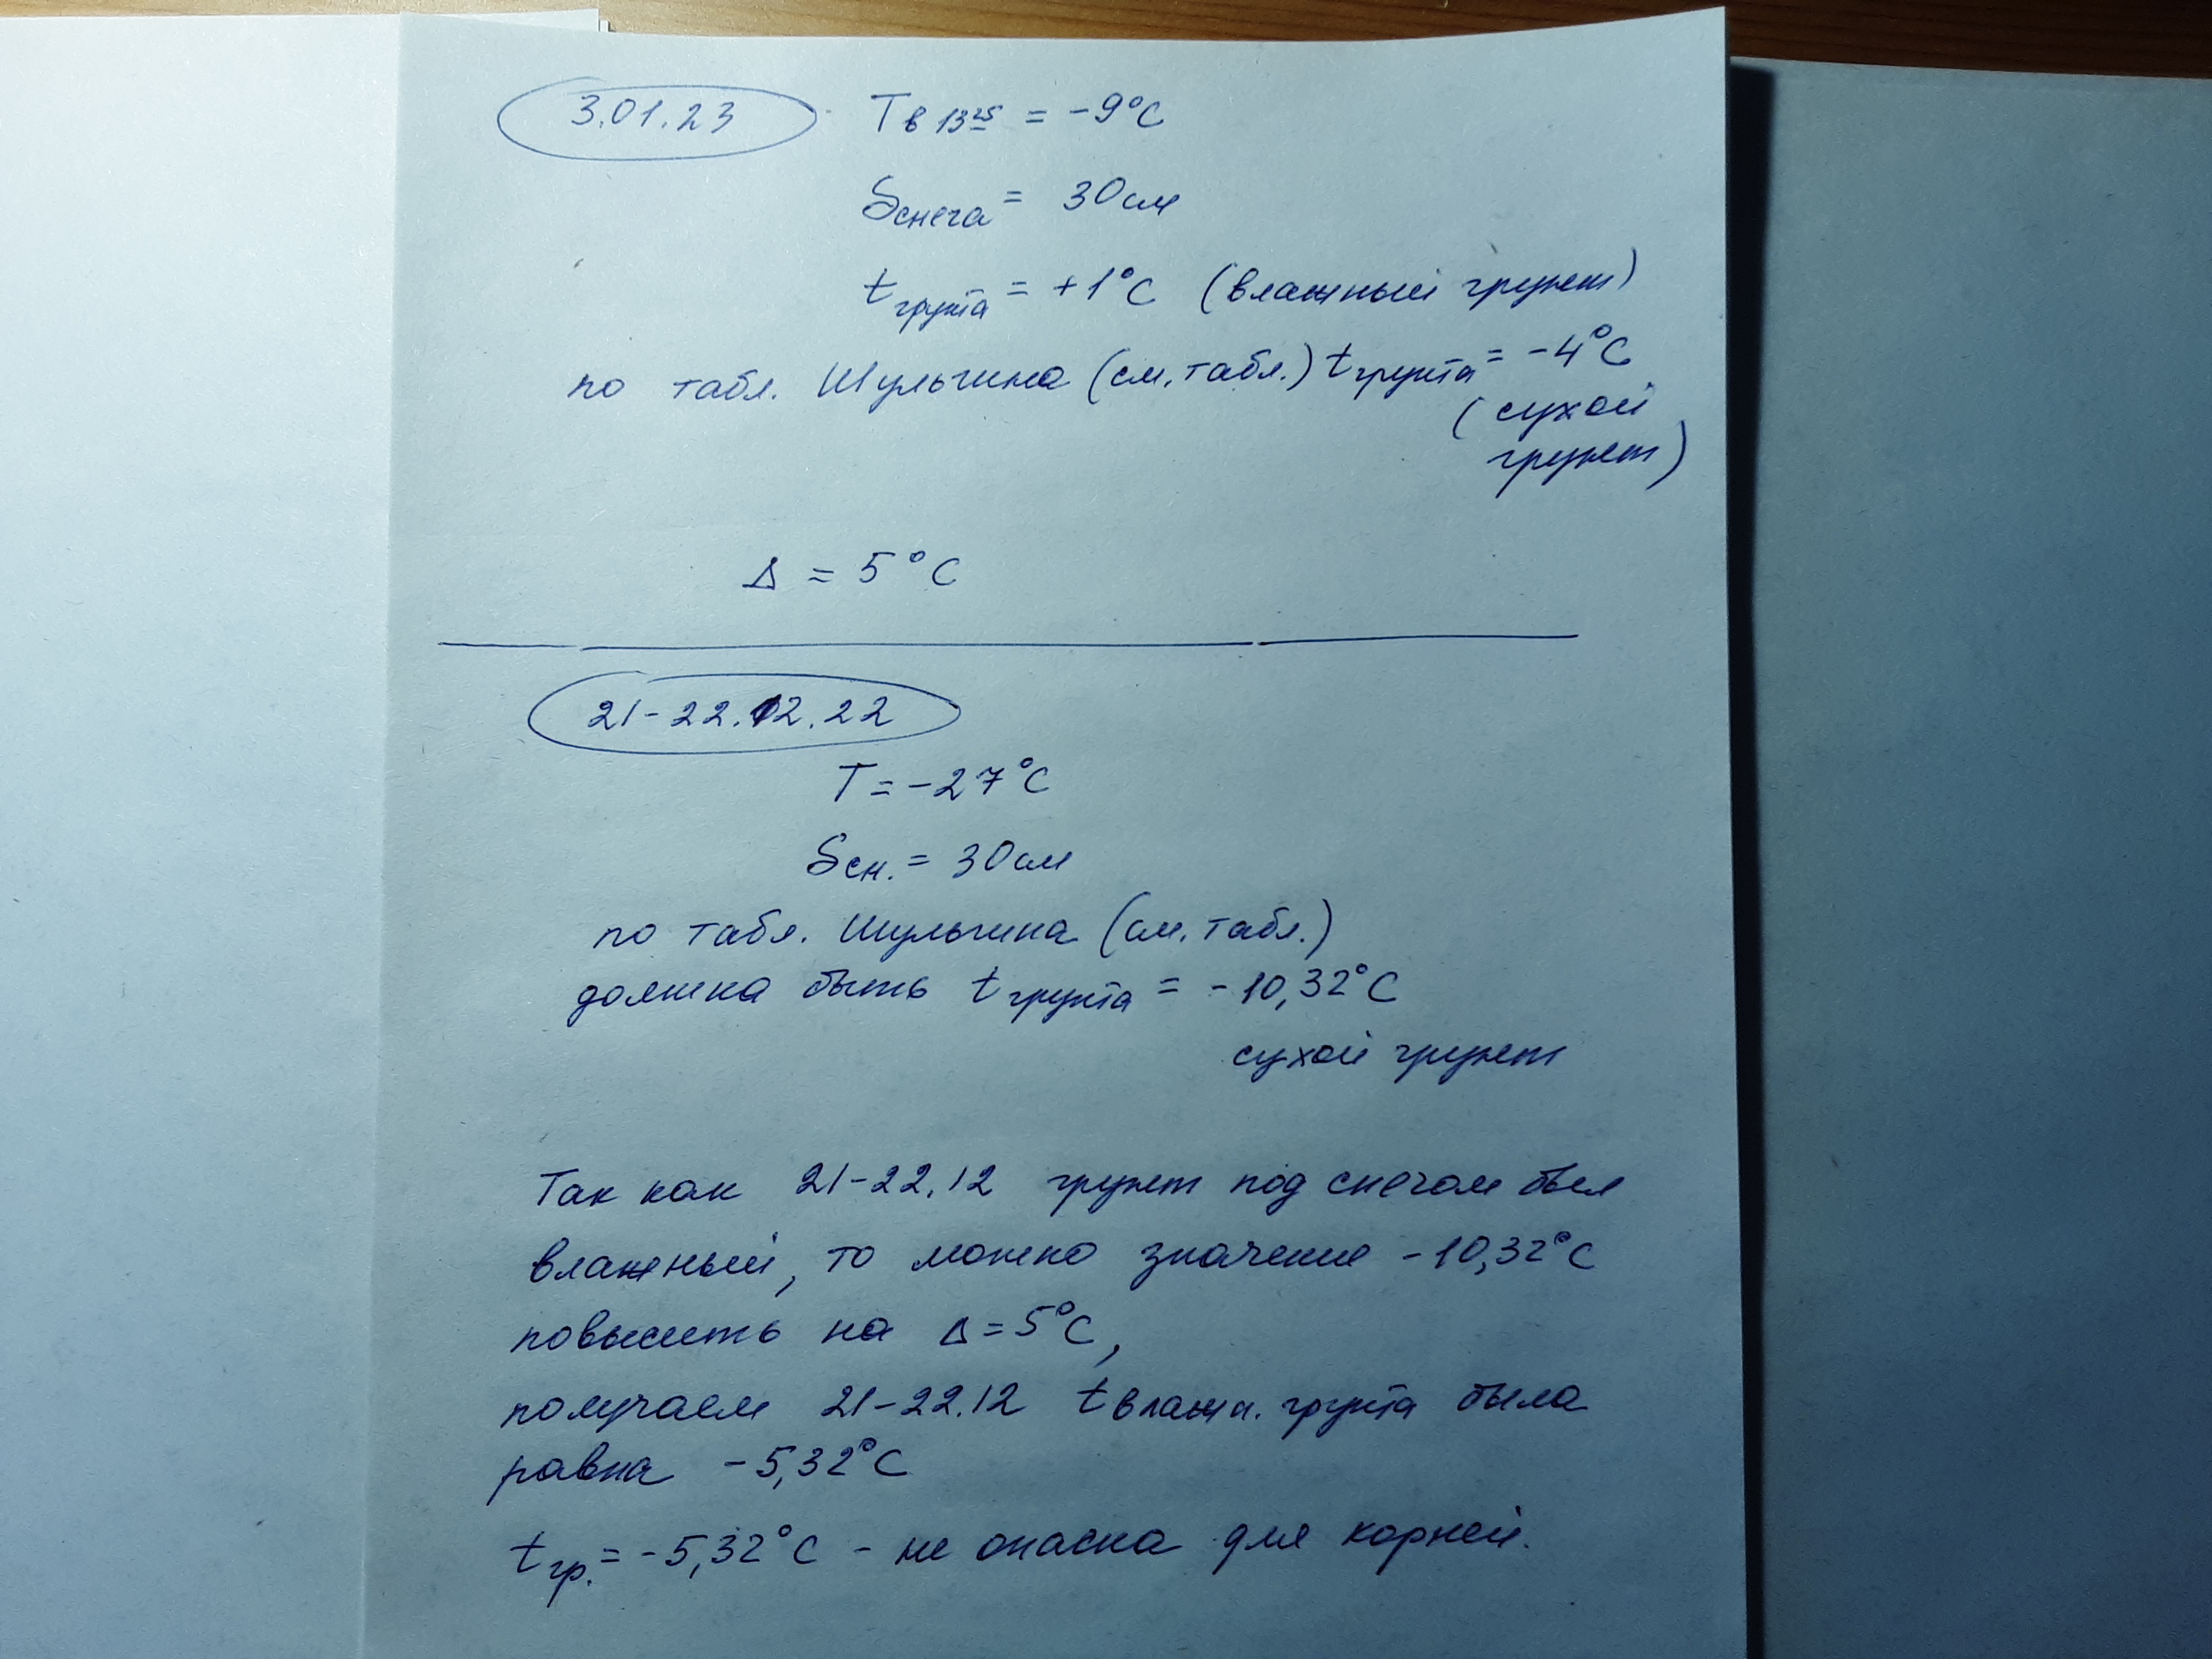 3.01.23 Tв 13²⁵ = -9°C
Sснега = 30 см
tгрунта = +1°C (влажный грунт)
по табл. Шульгина (см. табл.) tгрунта = -4°C
(сухой
грунт)
Δ = 5°C
21-22.12.22
T = -27°C
Sсн. = 30 см
по табл. Шульгина (см. табл.)
должна быть tгрунта = -10,32°C
сухой грунт
Так как 21-22.12 грунт под снегом был
влажный, то можно значение -10,32°C
повысить на Δ = 5°C,
получаем 21-22.12 tвлажн. грунта была
равна -5,32°C
tгр. = -5,32°C - не опасна для корней.